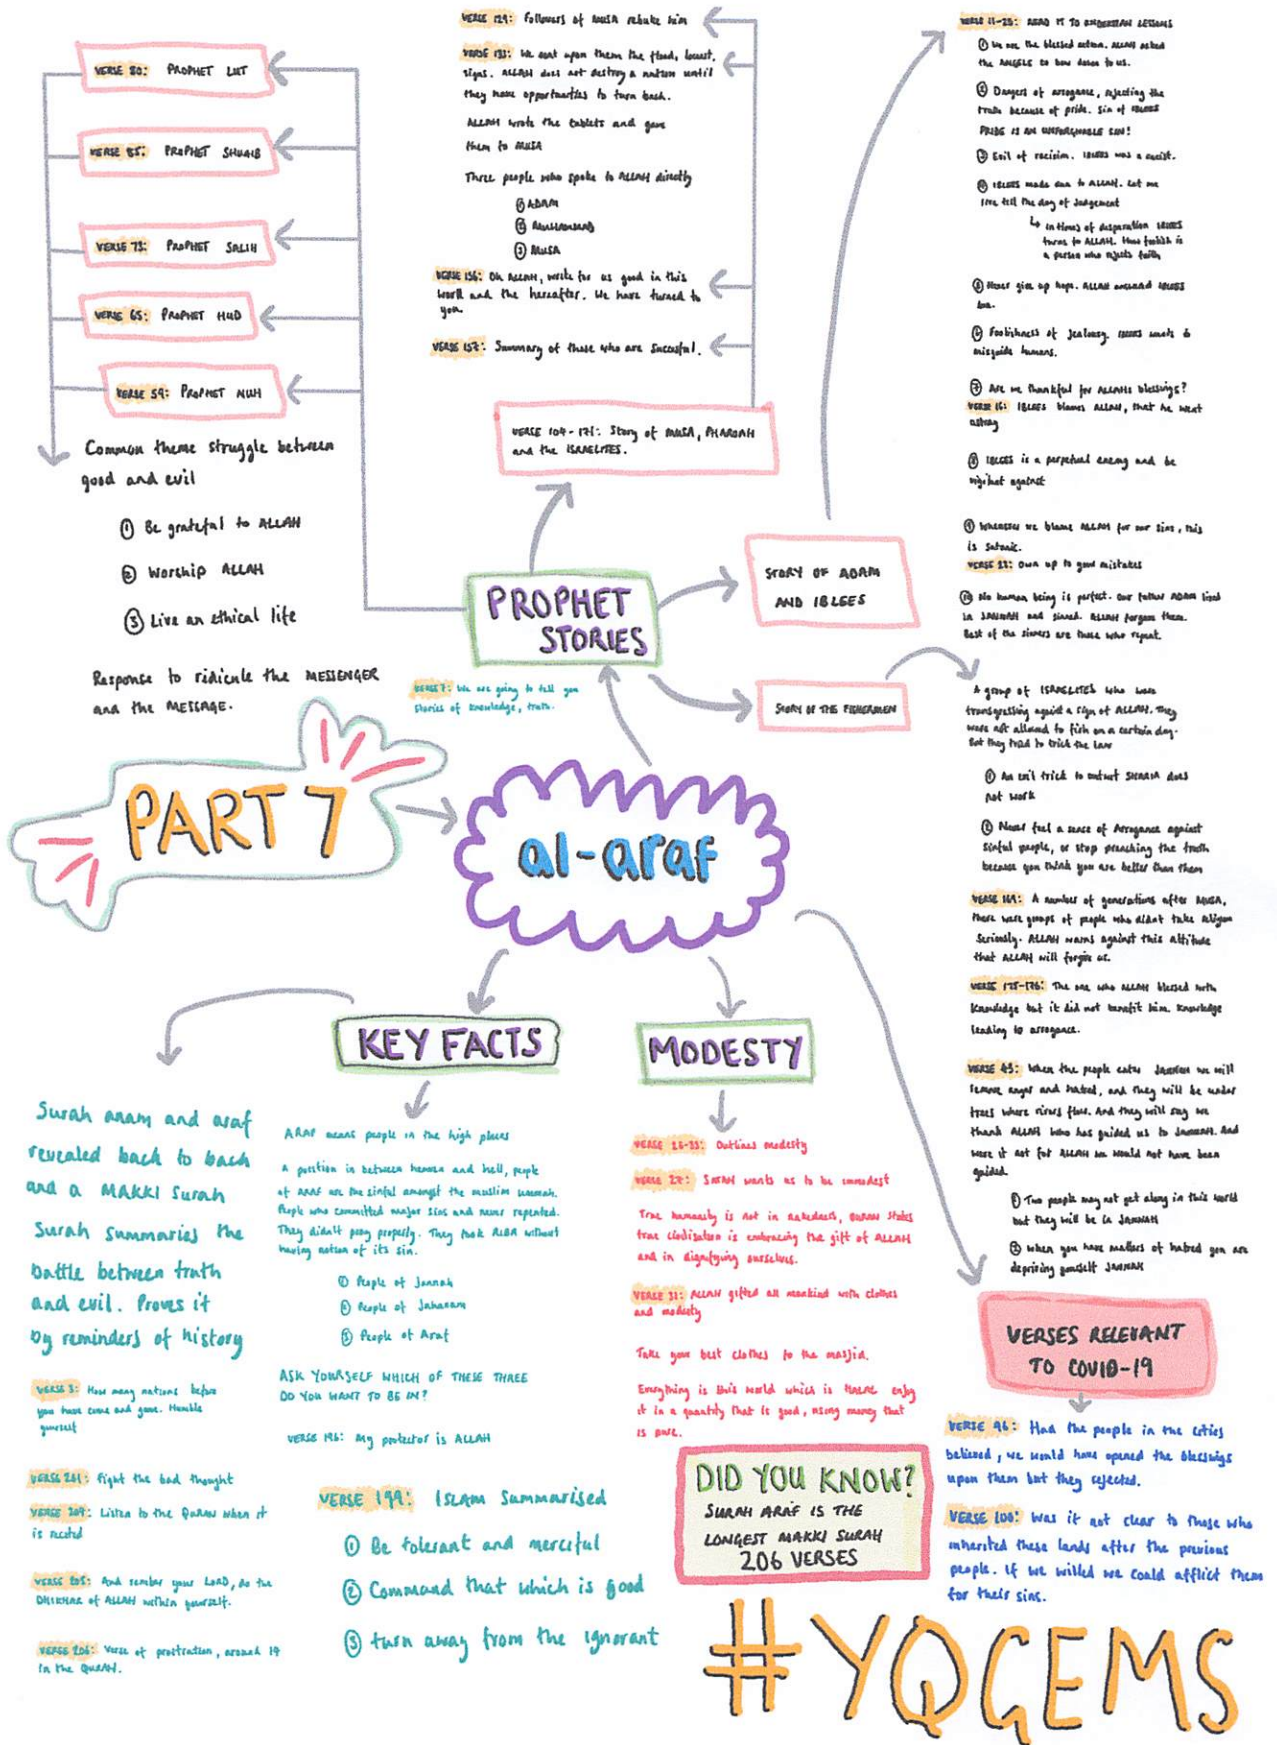 VERSE 80: PROPHET LUT
VERSE 85: PROPHET SHUAIB
VERSE 73: PROPHET SALIH
VERSE 65: PROPHET HUD
VERSE 59: PROPHET NUH
Common theme struggle between
good and evil
① Be grateful to ALLAH
② Worship ALLAH
③ Live an ethical life
Response to ridicule the MESSENGER
and the MESSAGE.
VERSE 129: Followers of MUSA rebuke him
VERSE 133: We sent upon them the flood, locust,
signs. ALLAH does not destroy a nation until
they have opportunities to turn back.
ALLAH wrote the tablets and gave
them to MUSA
Three people who spoke to ALLAH directly
① ADAM
② MUHAMMAD
③ MUSA
VERSE 156: Oh ALLAH, write for us good in this
world and the hereafter. We have turned to
you.
VERSE 157: Summary of those who are succesful.
VERSE 104-171: Story of MUSA, PHAROAH
and the ISRAELITES.
PROPHET
STORIES
VERSE 7: We are going to tell you
stories of knowledge, truth.
STORY OF ADAM
AND IBLEES
STORY OF THE FISHERMEN
VERSE 11-25: READ IT TO UNDERSTAN LESSONS
① We are the blessed nation. ALLAH asked
the ANGELS to bow down to us.
② Dangers of arrogance, rejecting the
truth because of pride. Sin of IBLEES
PRIDE IS AN UNFORGIVABLE SIN!
③ Evil of racisim. IBLEES was a racist.
④ IBLEES made dua to ALLAH. Let me
live till the day of Judgement
↳ In times of desparation IBLEES
turns to ALLAH. How foolish is
a person who rejects faith
⑤ Never give up hope. ALLAH answered IBLEES
dua.
⑥ Foolishness of jealousy. IBLEES wants to
misguide humans.
⑦ Are we thankful for ALLAHs blessings?
VERSE 16: IBLEES blames ALLAH, that he went
astray
⑧ IBLEES is a perpetual enemy and be
vigilant against
⑨ Whenever we blame ALLAH for our sins, this
is satanic.
VERSE 23: Own up to your mistakes
⑩ No human being is perfect. Our father ADAM lived
in JANNAH and sinned. ALLAH forgave them.
Best of the sinners are those who repent.
A group of ISRAELITES who were
transgressing against a sign of ALLAH. They
were not allowed to fish on a certain day.
But they tried to trick the law
① An evil trick to outwit SHARIA does
not work
② Never feel a sence of Arrogance against
sinful people, or stop preaching the truth
because you think you are better than them
VERSE 169: A number of generations after MUSA,
there were groups of people who didnt take religion
seriously. ALLAH warns against this attitude
that ALLAH will forgive us.
VERSE 175-176: The one who ALLAH blessed with
knowledge but it did not benefit him. Knowledge
leading to arrogance.
VERSE 43: When the people enter JANNAH we will
remove anger and hatred, and they will be under
trees where rivers flow. And they will say we
thank ALLAH who has guided us to JANNAH. And
were it not for ALLAH we would not have been
guided.
① Two people may not get along in this world
but they will be in JANNAH
② When you have matters of hatred you are
depriving yourself JANNAH
PART 7
al-araf
KEY FACTS
MODESTY
Surah anam and araf
revealed back to back
and a MAKKI surah
Surah summaries the
battle between truth
and evil. Proves it
by reminders of history
VERSE 3: How many nations before
you have come and gone. Humble
yourself
VERSE 201: Fight the bad thought
VERSE 204: Listen to the QURAN when it
is recited
VERSE 205: And rember your LORD, do the
DHIKHAR of ALLAH within yourself.
VERSE 206: Verse of prostration, around 14
in the QURAN.
ARAF means people in the high places
A position in between heaven and hell, people
of ARAF are the sinful amongst the muslim ummah.
People who committed major sins and never repented.
They didnt pray properly. They took RIBA without
having notion of its sin.
① People of Jannah
② People of Jahanam
③ People of Araf
ASK YOURSELF WHICH OF THESE THREE
DO YOU WANT TO BE IN?
VERSE 196: My protector is ALLAH
VERSE 199: ISLAM Summarised
① Be tolerant and merciful
② Command that which is good
③ turn away from the ignorant
VERSE 26-33: Outlines modesty
VERSE 27: SATAN wants us to be immodest
True humanity is not in nakedness, QURAN states
true civilisation is embracing the gift of ALLAH
and in dignifying ourselves.
VERSE 31: ALLAH gifted all mankind with clothes
and modesty
Take your best clothes to the masjid.
Everything is this world which is there enjoy
it in a quantity that is good, using money that
is pure.
DID YOU KNOW?
SURAH ARAF IS THE
LONGEST MAKKI SURAH
206 VERSES
VERSES RELEVANT
TO COVID-19
VERSE 96: Had the people in the cities
believed, we would have opened the blessings
upon them but they rejected.
VERSE 100: Was it not clear to those who
inherited these lands after the previous
people. If we willed we could afflict them
for their sins.
#YQGEMS